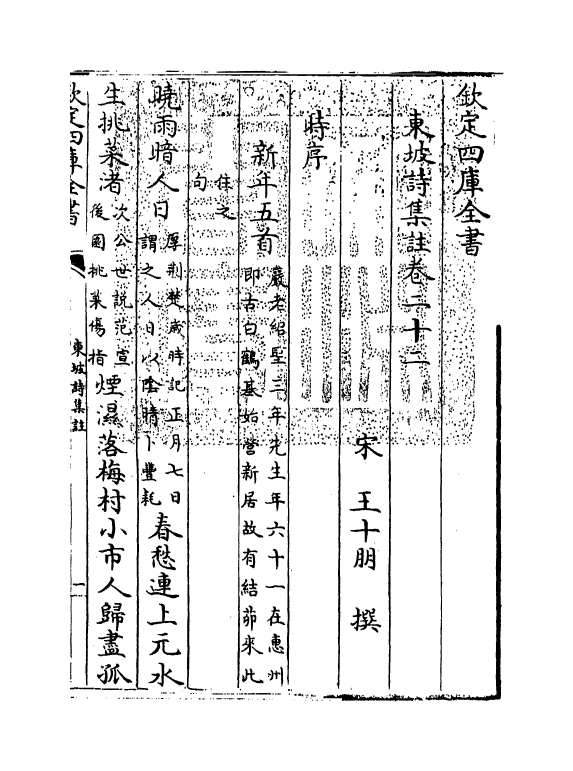 欽定四庫全書
東坡詩集註卷二十二
宋 王十朋 撰
時序
新年五首 嚴老紹聖三年先生年六十一在惠州即古白鶴基始營新居故有結茆來此
住之句
曉雨暗人日 厚荆楚歲時記正月七日謂之人日以陰晴卜豐耗 春愁連上元水
生挑菜渚 次公世說范宣後園挑菜傷指 煙濕落梅村小市人歸盡孤
欽定四庫全書
東坡詩集註
一